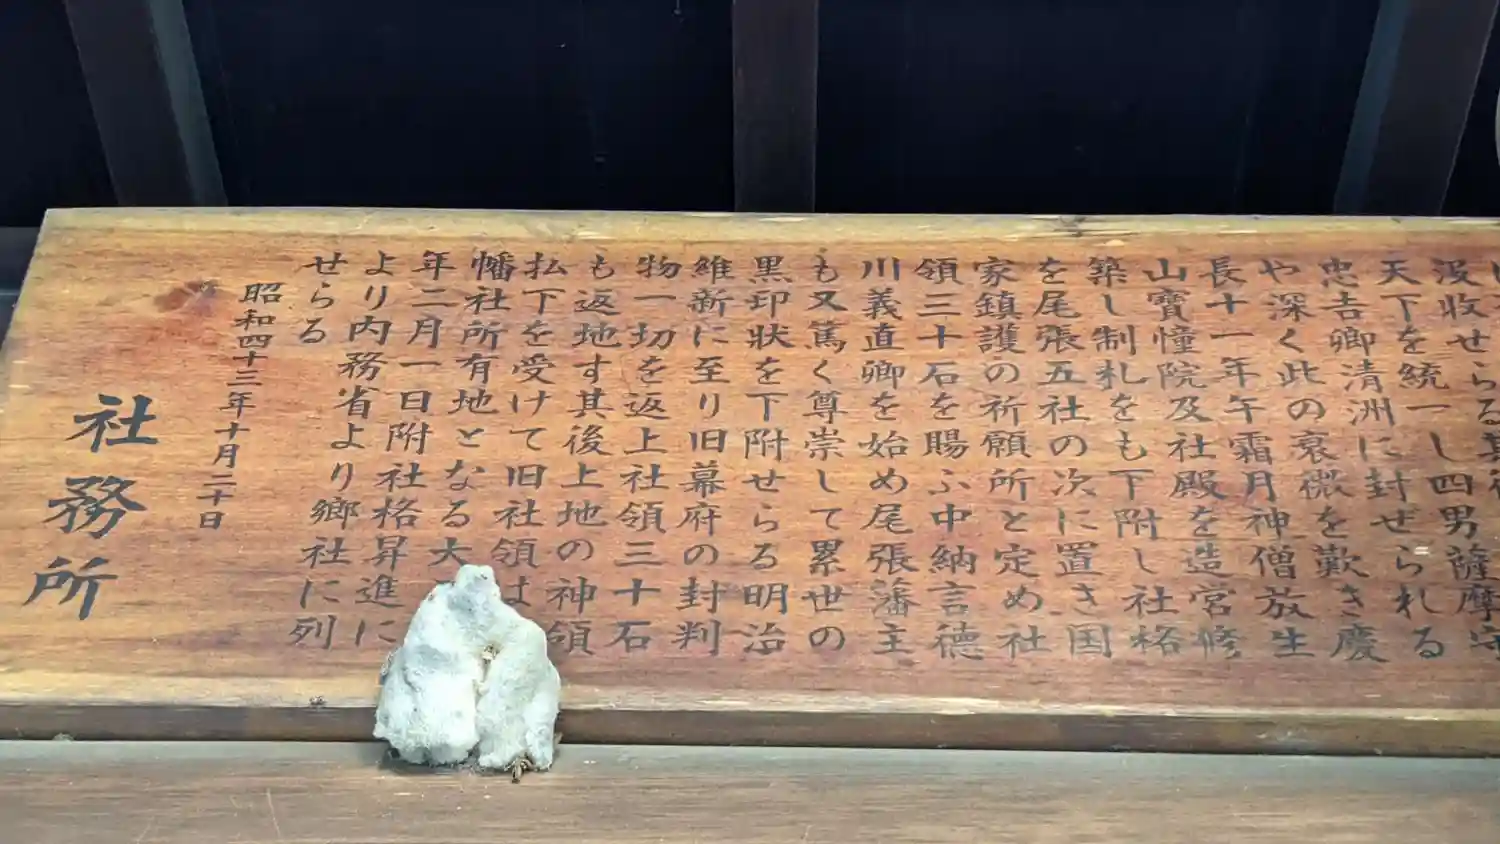 没收せらる其後
天下を統一し四男薩摩守
忠吉卿清洲に封ぜられる
や深く此の衰微を歎き慶
長十一年午霜月神僧放生
山寶憧院及社殿を造宮修
築し制札をも下附し社格
を尾張五社の次に置き国
家鎮護の祈願所と定め社
領三十石を賜ふ中納言德
川義直卿を始め尾張藩主
も又篤く尊崇して累世の
黒印状を下附せらる明治
維新に至り旧幕府の封判
物一切を返上社領三十石
も返地す其後上地の神領
払下を受けて旧社領は
幡社所有地となる大
年二月一日附社格昇進に
より内務省より郷社に列
せらる
昭和四十三年十月二十日
社務所